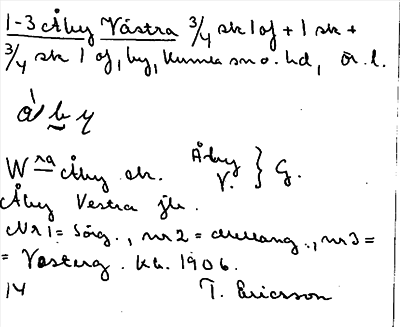 1-3 Åby Västra 3/4 sk 1 of + 1 sk +
3/4 sk 1 of, by, Kumla sn o. hd, Ör. l.
å̀by
Wra Åby ek. Åby V. } G.
Åby Vestra jb.
Nr 1 = Sörg., nr 2 = Mellang., nr 3 =
= Västerg. kk. 1906.
14 T. Ericsson